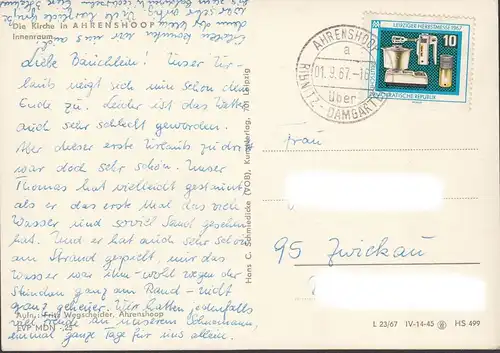 Die Kirche in AHRENSHOOP
Innenraum
Liebe Bäuchlein! Unser Ur-
laub neigt sich nun schon dem
Ende zu. Leider ist das Wetter
auch sehr schlecht geworden.
Aber dieser erste Urlaub zu dritt
war doch sehr schön. Unser
Thomas hat vielleicht gestaunt
als er das erste Mal das viele
Wasser und soviel Sand gesehen
hat. Und er hat auch sehr schön
am Strand gespielt, nur das
Wasser war ihm wohl wegen der
ganz am Rand - nicht
ganz geheuer. Wir hatten jedenfalls
viel Freude an unserem
einmal ganze Tage für uns allein.
Aufn.: Fritz Wegscheider, Ahrenshoop
EVP MDN -,25
Hans C. Schmiedicke (VOB), Kunstverlag, 701 Leipzig
AHRENSHOOP
a
01.9.67.-16
über
RIBNITZ-DAMGARTEN
LEIPZIGER HERBSTMESSE 1967
10
DEMOKRATISCHE REPUBLIK
Frau
95 Zwickau
L 23/67 IV-14-45 HS 499